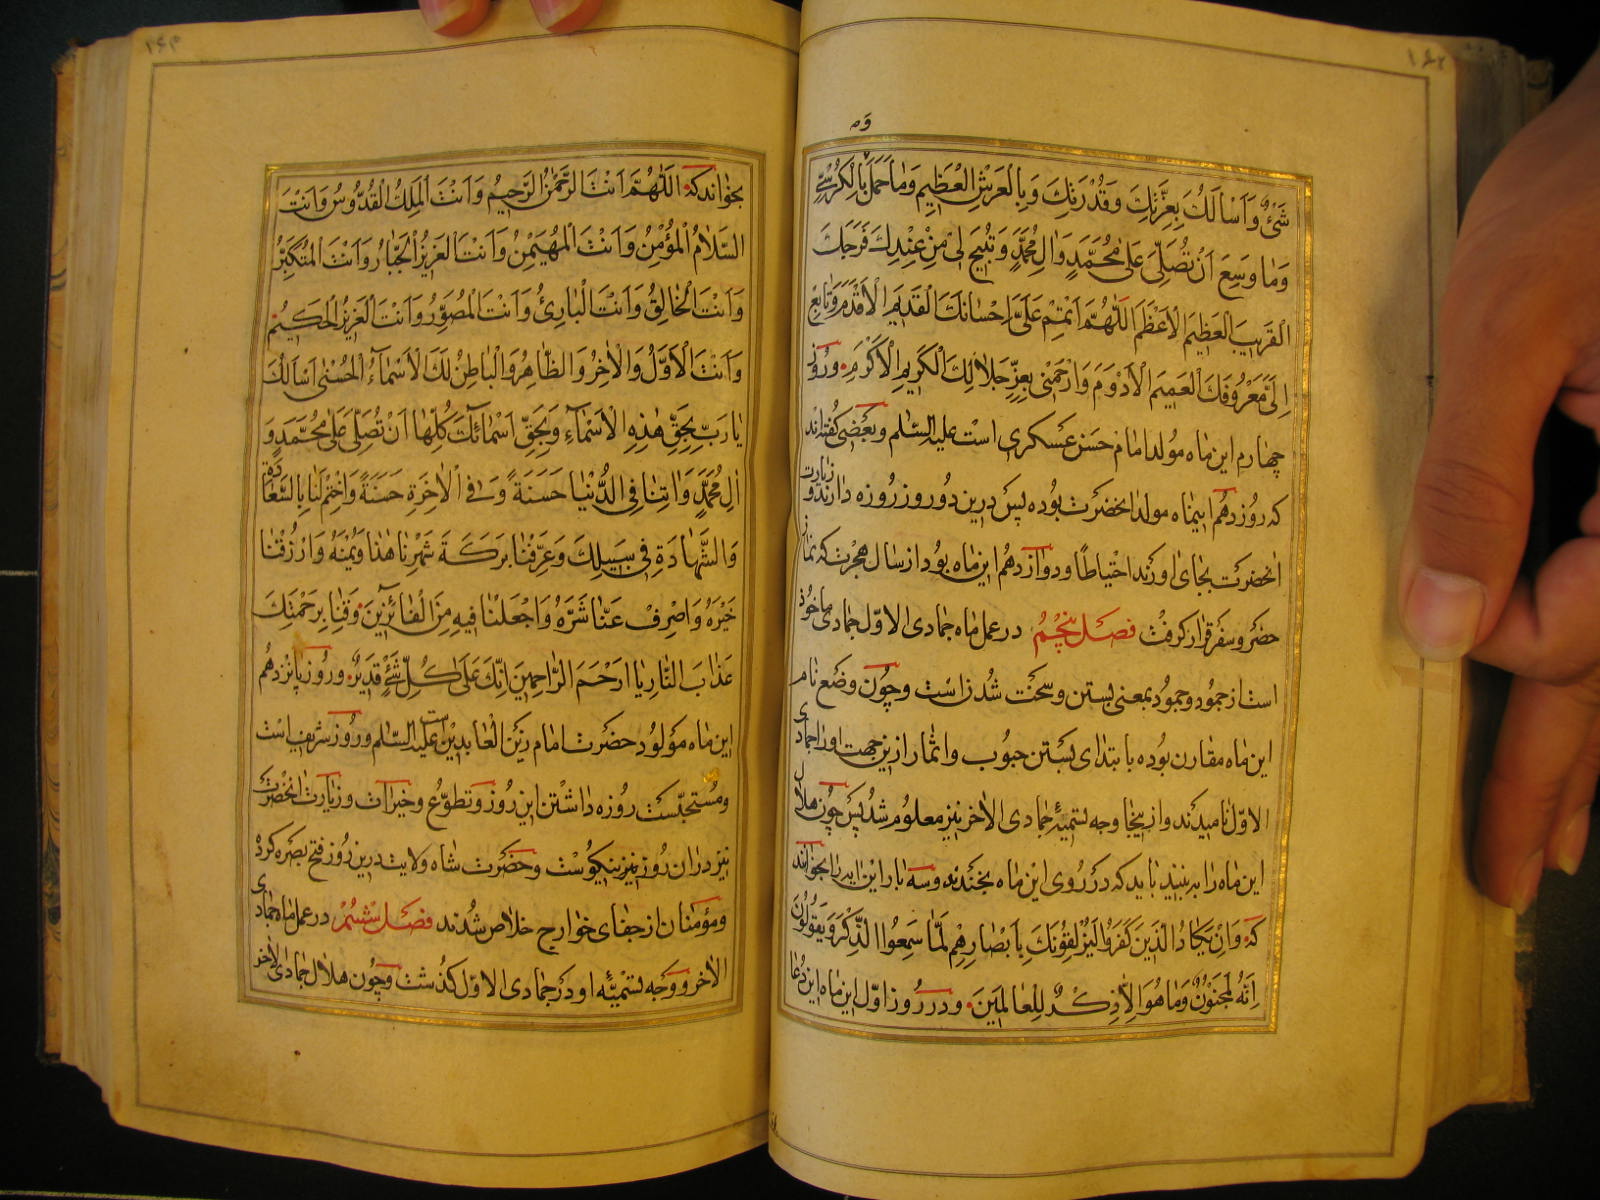 شَیْءٌ وَاَسْاَلُكَ بِعِزَّتِكَ وَقُدْرَتِكَ وَبِالْعَرْشِ الْعَظِيمِ وَمَاحَمَلَ بِالْكُرْسِىِّ
وَمٰا وَسِعَ اَنْ تُصَلِّىَ عَلىٰ مُحَمَّدٍ وَاٰلِ مُحَمَّدٍ وَتُبِيحَ لِىْ مِنْ عِنْدِكَ فَرَجَكَ
الْقَرِيبَ الْعَظِيمَ الْاَعْظَمَ اَللّٰهُمَّ اَتْمِمْ عَلَىَّ اِحْسٰانَكَ الْقَدِيمَ الْاَقْدَمَ وَتٰابِعْ
اِلَىَّ مَعْرُوفَكَ الْعَمِيمَ الْاَدْوَمَ وَارْحَمْنِى بِعِزِّ جَلاٰلِكَ الْكَرِيمِ الْاَكْرَمِ وروز
چهارم این ماه مولد امام حسن عسکری است علیه السلم وبعضی گفته‌اند
که روز دهم اینماه مولد انحضرت بوده پس درین دو روز روزه دارند و زیارت
انحضرت بجای اورند احتیاطاً ودوازدهم این ماه بود از سال هجرت که نماز
حضر وسفر قرار گرفت فصل پنجم در عمل ماه جمادی الاوّل جمادی ماخوذ
است از جمود وجمود بمعنی بستن وسخت شدنست وچون وضع نام
این ماه مقارن بوده با ابتدای بستن حبوب واثمار ازین جهت اورا جمادی
الاوّل نامیدند واز اینجا وجه تسمیهٔ جمادی الاخر نیز معلوم شد پس چون هلال
این ماه را به بینند باید که در روی این ماه بخندند وسه بار این ایه را بخوانند
که وَاِنْ يَكٰادُ الَّذِينَ كَفَرُوا لَيُزْلِقُونَكَ بِاَبْصٰارِهِمْ لَمّٰا سَمِعُوا الذِّكْرَ وَيَقُولُونَ
اِنَّهُ لَمَجْنُونٌ وَمٰا هُوَ اِلّٰا ذِكْرٌ لِلْعٰالَمِينَ ودر روز اوّل این ماه این دعا
بخواند که اَللّٰهُمَّ اَنْتَ الرَّحْمٰنُ الرَّحِيمُ وَاَنْتَ الْمَلِكُ الْقُدُّوسُ وَاَنْتَ
السَّلاٰمُ الْمُؤْمِنُ وَاَنْتَ الْمُهَيْمِنُ وَاَنْتَ الْعَزِيزُ الْجَبّٰارُ وَاَنْتَ الْمُتَكَبِّرُ
وَاَنْتَ الْخٰالِقُ وَاَنْتَ الْبٰارِئُ وَاَنْتَ الْمُصَوِّرُ وَاَنْتَ الْعَزِيزُ الْحَكِيمُ
وَاَنْتَ الْاَوَّلُ وَالْاٰخِرُ وَالظّٰاهِرُ وَالْبٰاطِنُ لَكَ الْاَسْمٰاءُ الْحُسْنىٰ اَسْاَلُكَ
يٰا رَبِّ بِحَقِّ هٰذِهِ الْاَسْمٰاءِ وَبِحَقِّ اَسْمٰائِكَ كُلِّهٰا اَنْ تُصَلِّىَ عَلىٰ مُحَمَّدٍ وَ
اٰلِ مُحَمَّدٍ وَاٰتِنٰا فِى الدُّنْيٰا حَسَنَةً وَفِى الْاٰخِرَةِ حَسَنَةً وَاخْتِمْ لَنٰا بِالسَّعٰادَةِ
وَالشَّهٰادَةِ فِى سَبِيلِكَ وَعَرِّفْنٰا بَرَكَةَ شَهْرِنٰا هٰذٰا وَيُمْنَهُ وَارْزُقْنٰا
خَيْرَهُ وَاصْرِفْ عَنّٰا شَرَّهُ وَاجْعَلْنٰا فِيهِ مِنَ الْفٰائِزِينَ وَقِنٰا بِرَحْمَتِكَ
عَذٰابَ النّٰارِ يٰا اَرْحَمَ الرّٰاحِمِينَ اِنَّكَ عَلىٰ كُلِّ شَیْءٍ قَدِيرٌ وروز پانزدهم
این ماه مولود حضرت امام زین العابدین است علیه السّلام وروز شریفی است
ومستحبّست روزه داشتن این روز وتطوّع وخیرات وزیارت انحضرت
نیز دران روز نیز نیکوست وحضرت شاه ولایت درین روز فتح بصره کرده
ومؤمنان از جفای خوارج خلاص شدند فصل ششم در عمل ماه جمادی
الاخر ووجه تسمیهٔ او در جمادی الاوّل گذشت وچون هلال جمادی الاخر